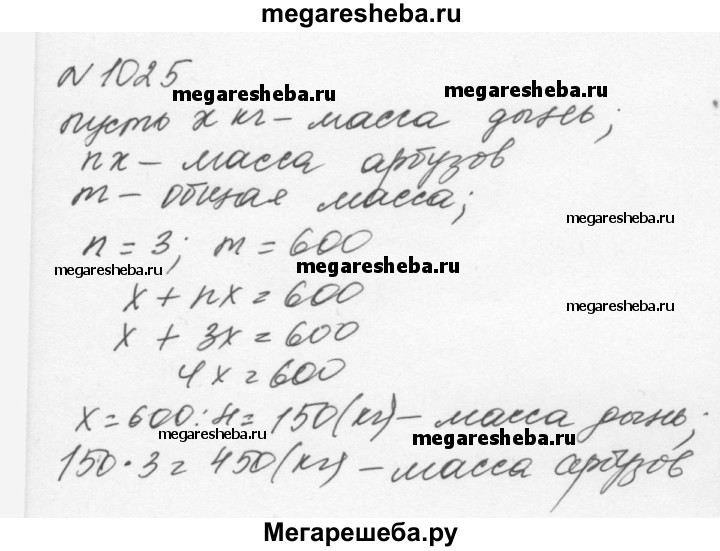 megaresheba.ru
N 1025
megaresheba.ru
пусть x кг – масса дынь;
nx – масса арбузов
m – общая масса;
megaresheba.ru
n = 3; m = 600
megaresheba.ru
megaresheba.ru
x + nx = 600
megaresheba.ru
x + 3x = 600
4x = 600
x = 600 : 4 = 150 (кг) – масса дынь;
megaresheba.ru
megaresheba.ru
150 · 3 = 450 (кг) – масса арбузов
Мегарешеба.ру